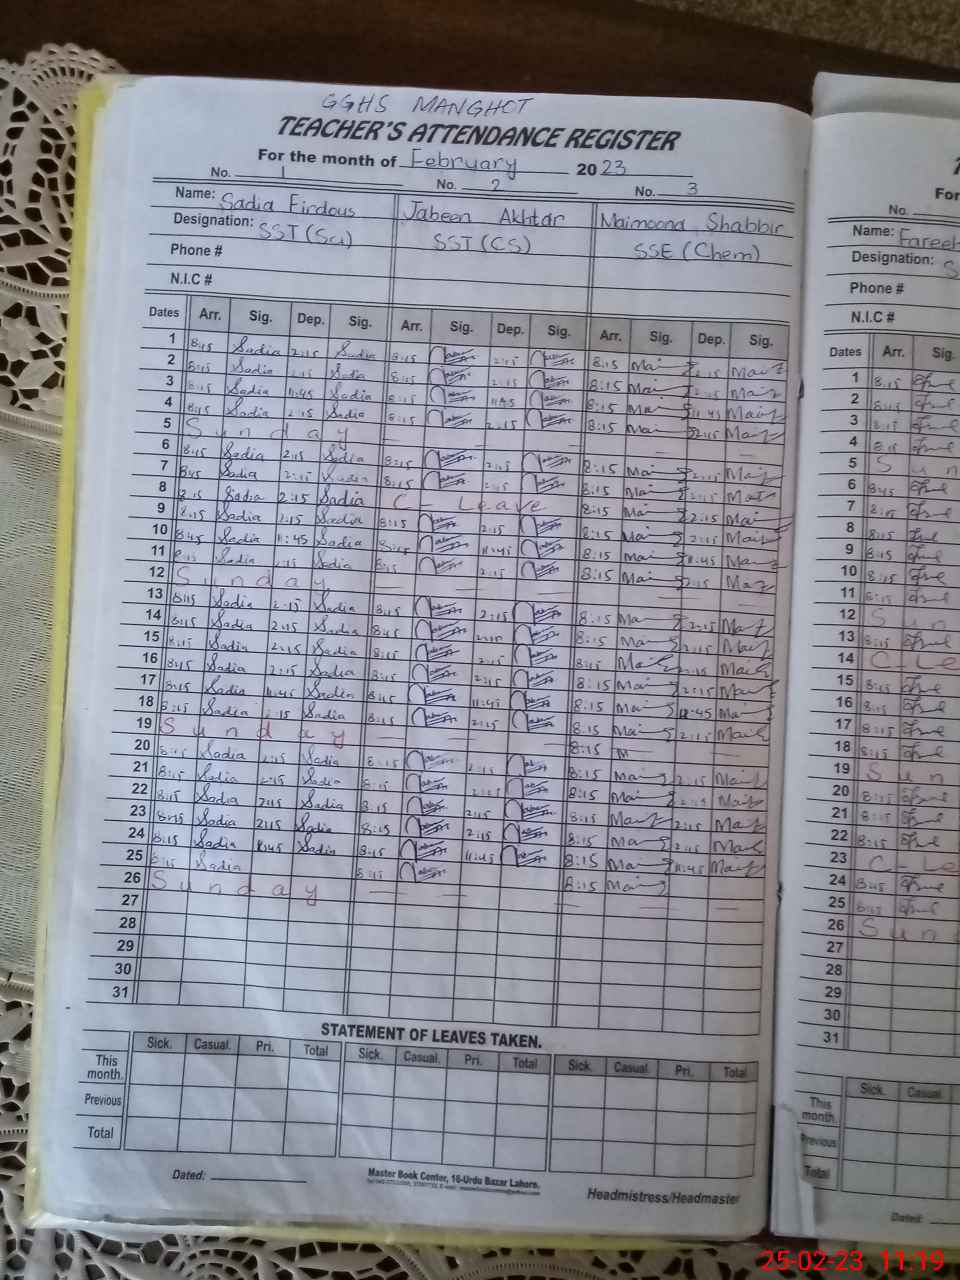 GGHS MANGHOT
TEACHER'S ATTENDANCE REGISTER
For the month of February 2023
No. 1 No. 2 No. 3
Name: Sadia Firdous Jabeen Akhtar Maimoona Shabbir
Designation: SST (Sci) SST (CS) SSE (Chem)
Phone #
N.I.C #
Dates Arr. Sig. Dep. Sig. Arr. Sig. Dep. Sig. Arr. Sig. Dep. Sig.
1 8:15 Sadia 2:15 Sadia 8:15 2:15 8:15 2:15
2 8:15 Sadia 2:15 Sadia 8:15 2:15 8:15 2:15
3 8:15 Sadia 11:45 Sadia 8:15 11:45 8:15 11:45
4 8:15 Sadia 2:15 Sadia 8:15 2:15 8:15 2:15
5 Sunday
6 8:15 Sadia 2:15 Sadia 8:15 2:15 8:15 2:15
7 8:15 Sadia 2:15 Sadia 8:15 2:15 8:15 2:15
8 8:15 Sadia 2:15 Sadia C Leave 8:15 2:15
9 8:15 Sadia 2:15 Sadia 8:15 2:15 8:15 2:15
10 8:45 Sadia 11:45 Sadia 8:15 11:45 8:15 11:45
11 8:15 Sadia 2:15 Sadia 8:15 2:15 8:15 2:15
12 Sunday
13 8:15 Sadia 2:15 Sadia 8:15 2:15 8:15 2:15
14 8:15 Sadia 2:15 Sadia 8:15 8:15 2:15
15 8:15 Sadia 2:15 Sadia 8:15 2:15 8:15 2:15
16 8:15 Sadia 2:15 Sadia 8:15 2:15 8:15 2:15
17 8:15 Sadia 11:45 Sadia 8:15 11:45 8:15 11:45
18 8:15 Sadia 2:15 Sadia 8:15 2:15 8:15 2:15
19 Sunday 8:15 M
20 8:15 Sadia 2:15 Sadia 8:15 2:15 8:15 2:15
21 8:15 Sadia 2:15 Sadia 8:15 2:15 8:15 2:15
22 8:15 Sadia 2:15 Sadia 8:15 2:15 8:15 2:15
23 8:15 Sadia 2:15 Sadia 8:15 2:15 8:15 2:15
24 8:15 Sadia 11:45 Sadia 8:15 11:45 8:15 11:45
25 8:15 Sadia 8:15 8:15
26 Sunday
27
28
29
30
31
STATEMENT OF LEAVES TAKEN.
Sick. Casual. Pri. Total Sick. Casual. Pri. Total Sick. Casual. Pri. Total
This month.
Previous
Total
Dated:
Master Book Center, 16-Urdu Bazar Lahore.
Headmistress/Headmaster
For
No.
Name: Fareeh
Designation: S
Phone #
N.I.C #
Dates Arr. Sig.
1 8:15
2 8:15
3 8:15
4 8:15
5 Sun
6 8:45
7 8:15
8 8:15
9 8:15
10 8:15
11 8:15
12 Sun
13 8:15
14 C Le
15 8:15
16 8:15
17 8:15
18 8:15
19 Sun
20 8:15
21 8:15
22 8:15
23 C Le
24 8:45
25 8:15
26 Sun
27
28
29
30
31
Sick. Casual
This month.
Previous
Total
Dated:
25-02-23 11:19